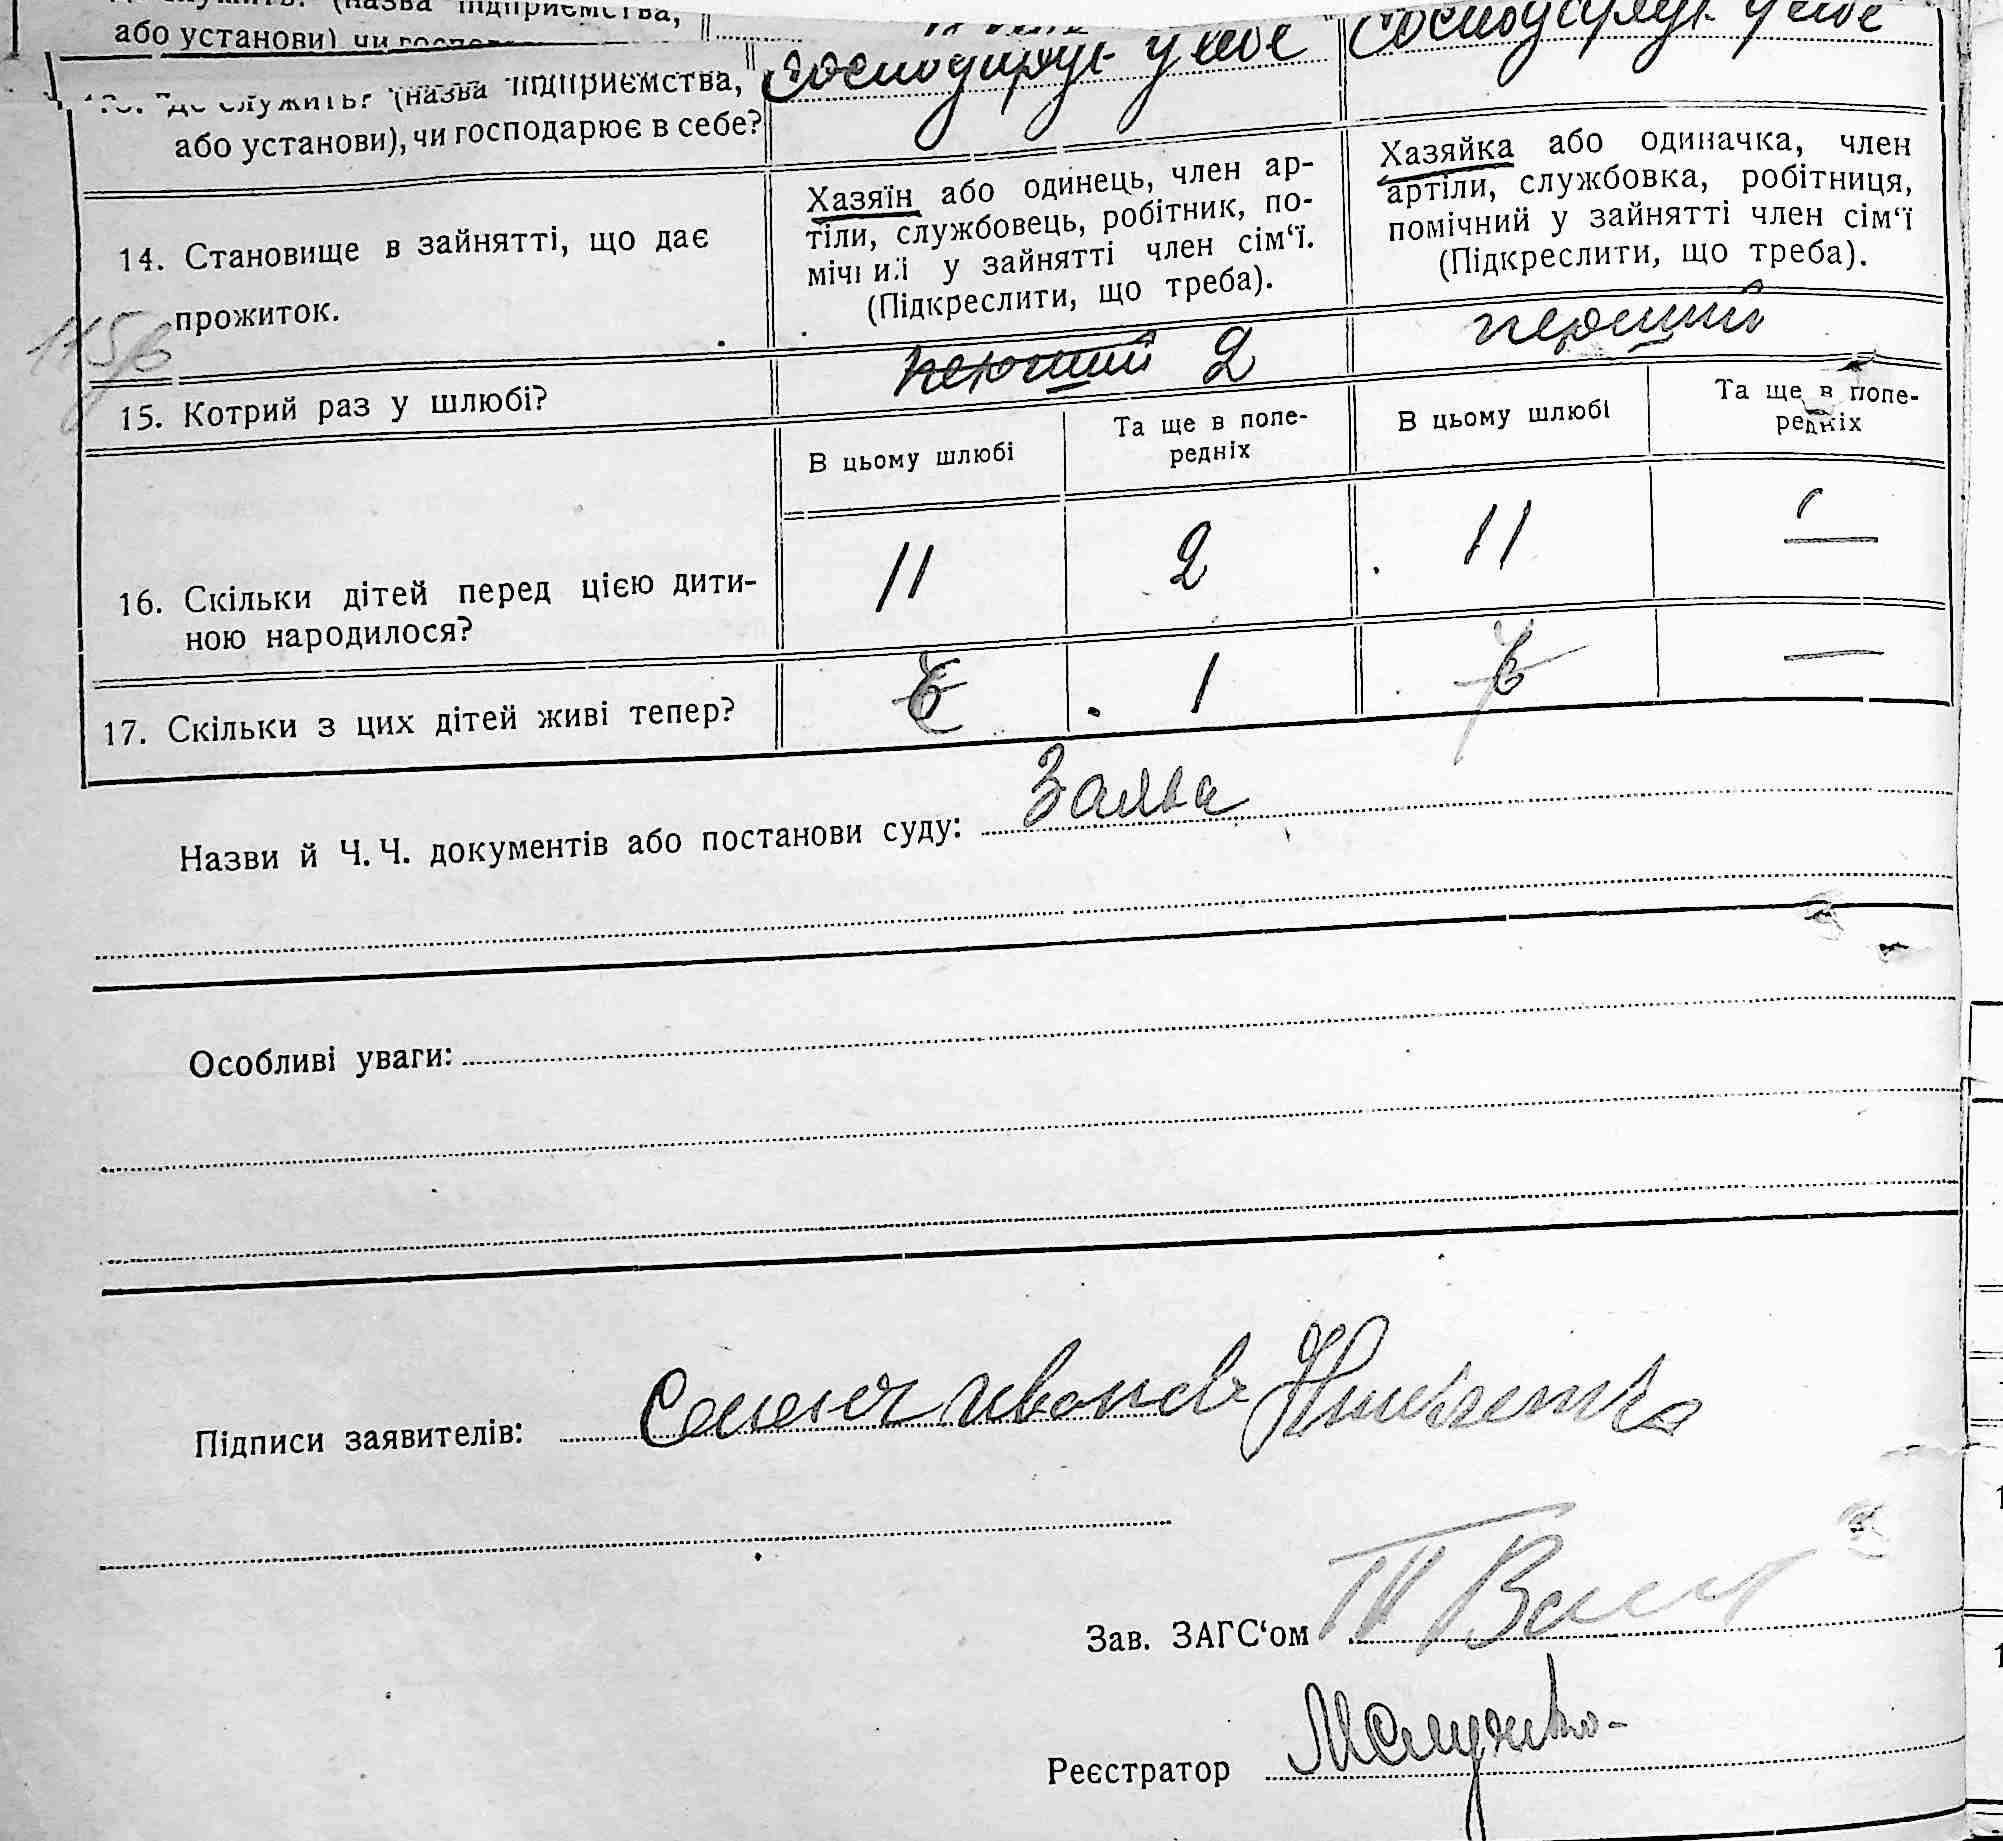 або установи)
господарує у себе
господарює у себе
13. Де служить? (назва підприємства,
або установи), чи господарює в себе?
14. Становище в зайнятті, що дає
прожиток.
Хазяїн або одинець, член ар-
тіли, службовець, робітник, по-
мічний у зайнятті член сім‘ї.
(Підкреслити, що треба).
Хазяйка або одиначка, член
артіли, службовка, робітниця,
помічний у зайнятті член сім‘ї
(Підкреслити, що треба).
15. Котрий раз у шлюбі?
перший 2
перший
В цьому шлюбі
Та ще в попе-
редніх
В цьому шлюбі
Та ще в попе-
редніх
16. Скільки дітей перед цією дити-
ною народилося?
11 2 11 —
17. Скільки з цих дітей живі тепер?
6 1 6 —
Назви й Ч. Ч. документів або постанови суду: Заява
Особливі уваги:
Підписи заявителів:
Зав. ЗАГС‘ом
Реєстратор